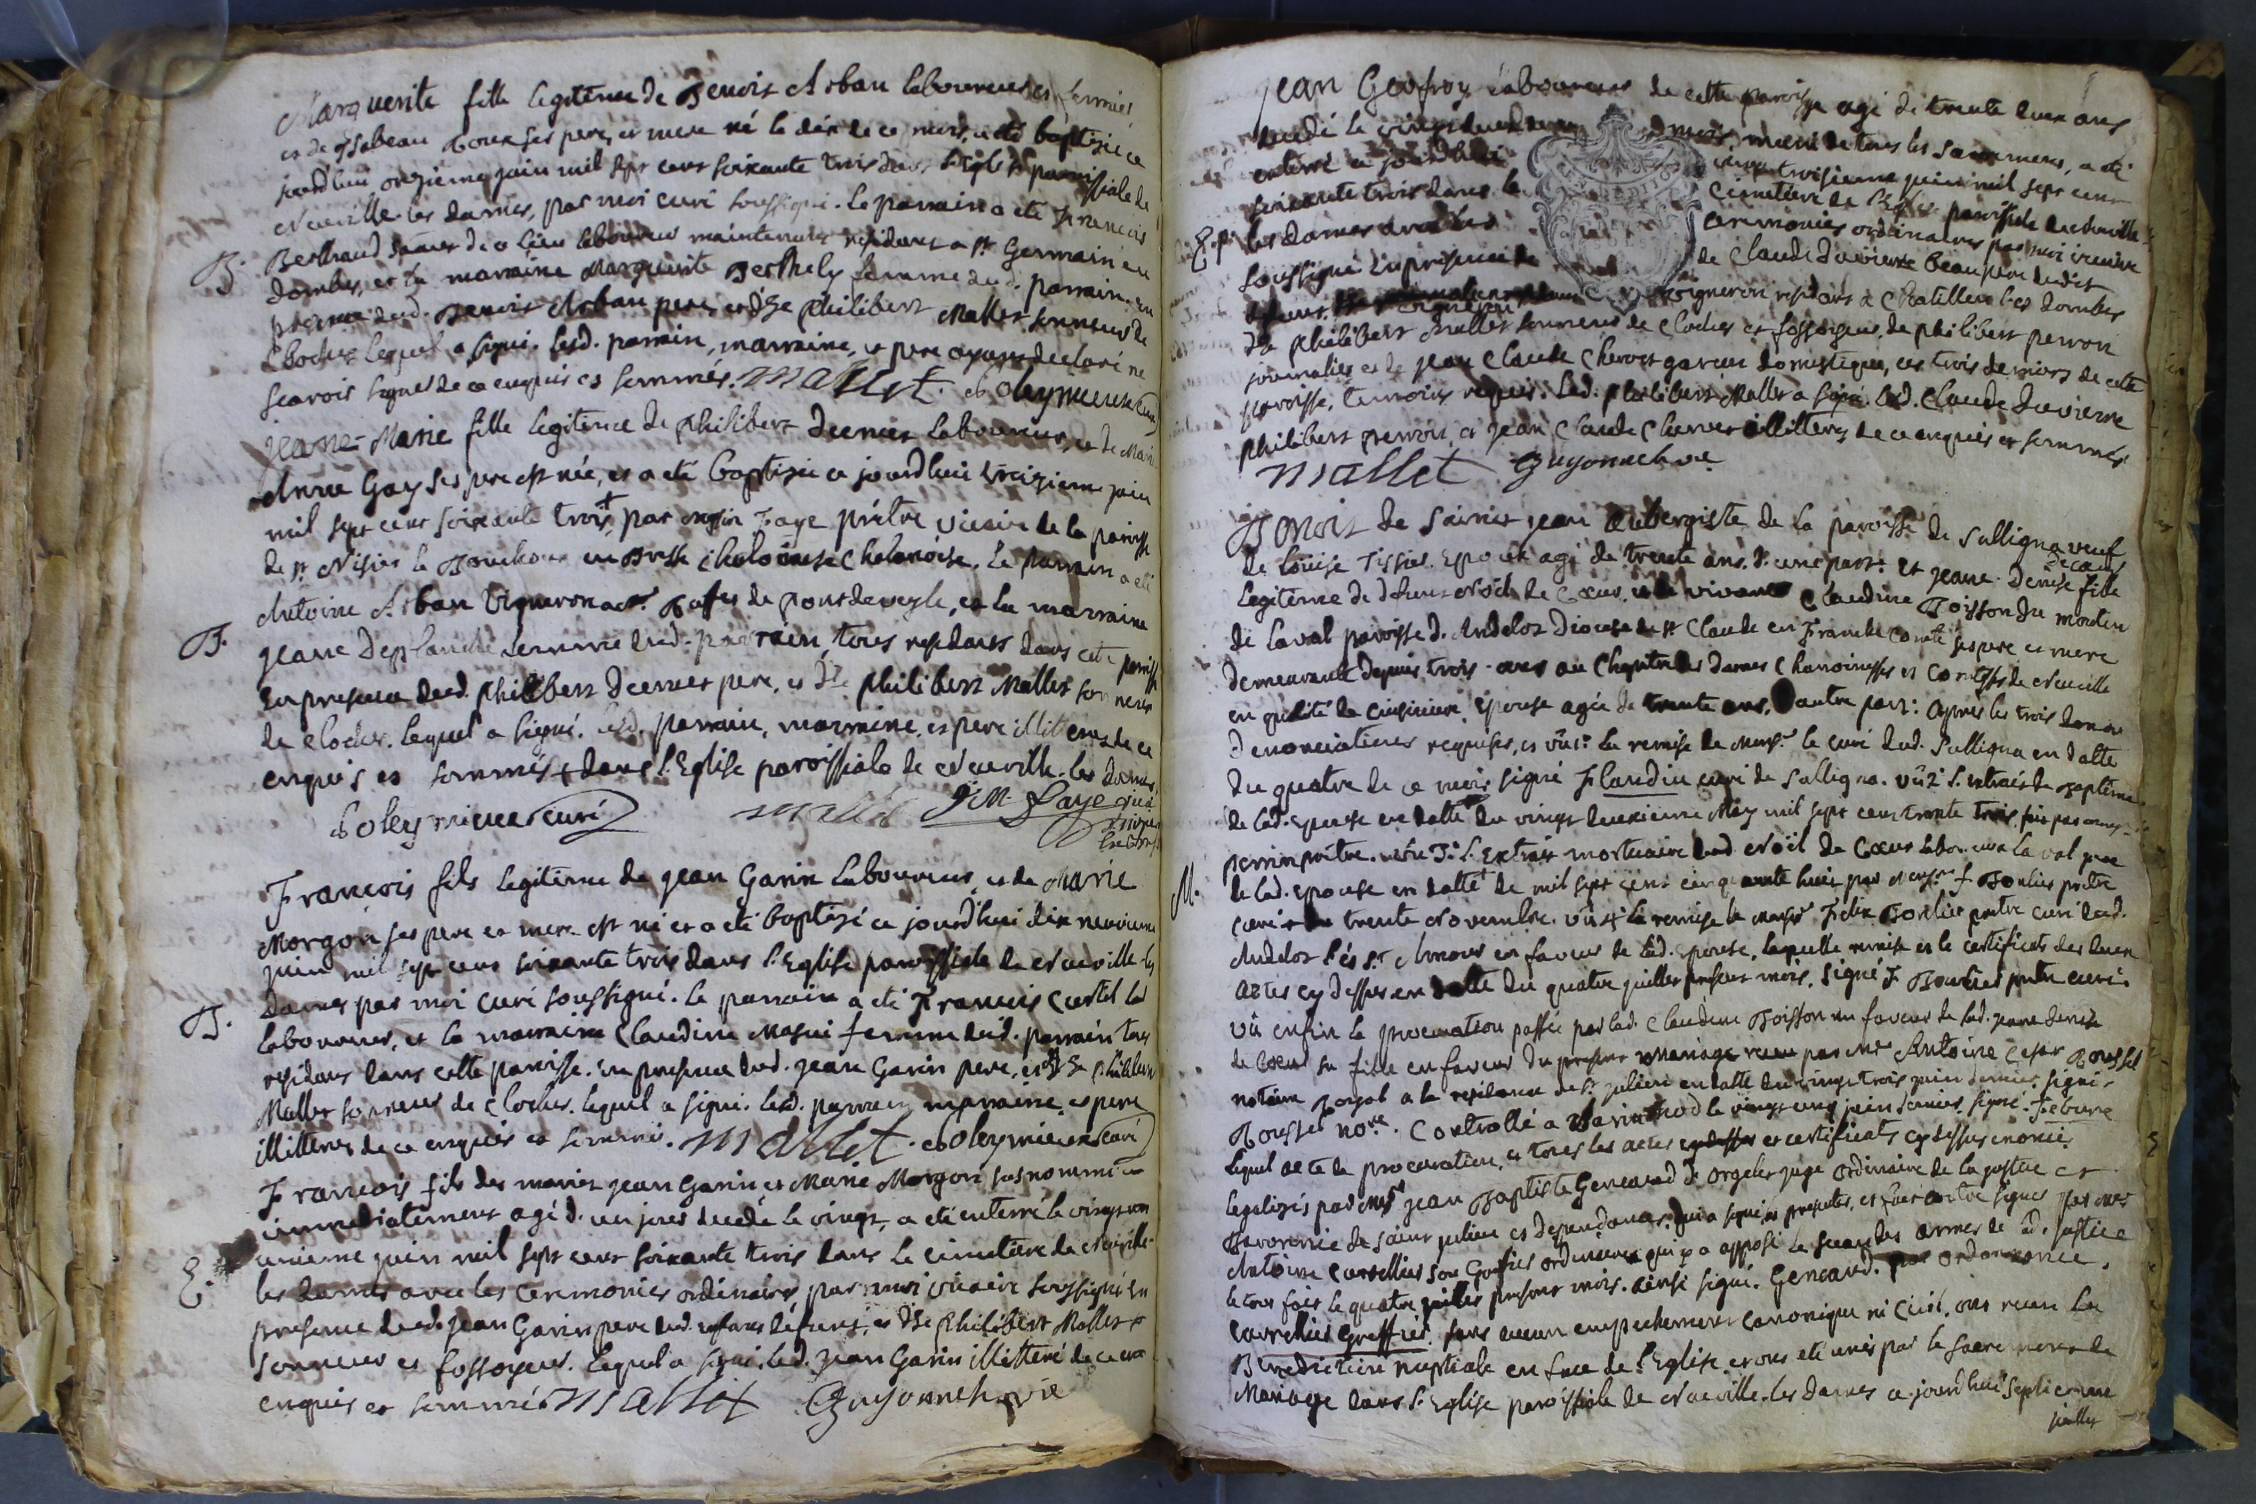 Marguerite fille legitime de Benoit Arban laboureur es fermier
et de Isabeau Roux ses pere et mere né le dix de ce mois a été baptisée ce
jourd'huy onzieme juin mil sept cens soixante trois dans l'Eglise paroissiale de
Neuville-les dames, par moi curé soussigné. Le parrain a été François
B. Berthaud de ce lieu laboureur maintenant residant a St Germain en
dombes, et la marraine Marguerite Berthely femme dud. parrain. En
presence dud. Benoit Arban pere, et de Philibert Mallet sonneur de
Cloches lequel a signé. lesd. parrain, marraine, et pere ayant declaré ne
scavoir signer de ce enquis et sommés. Mallet.
jeanne-Marie fille legitime de Philibert Decuer laboureur, et de Marie
Anne Gay ses pere est née, et a été baptisée ce jourd'huy treizieme juin
mil sept cens soixante trois + par messire Faye prêtre vicaire de la paroisse
de St Nisier le Bouchoux en Bresse Chalonoise. Le parrain a été
Antoine Arban Vigneron de pontdeveyle, et la marraine
B. jeane Desplanche femme dud. parrain, tous residants dans cette paroisse
En presence dud. Philibert Decuer pere, et de Philibert Mallet sonneur
de cloches. lequel a signé. lesd. parrain, marraine, et pere illitterés de ce
enquis et sommés + dans l'Eglise paroissiale de Neuville-les dames
Poleymieux curé Mallet J M Faye vicaire
François fils legitime de jean Garin Laboureur, et de Marie
Morgon ses pere et mere est né et a été baptisé ce jourd'huy dix neuvieme
juin mil sept cens soixante trois dans l'Eglise paroissiale de Neuville-les
B. Dames par moi curé soussigné. Le parrain a été François Curtil
laboureur, et la marraine Claudine Masui femme dud. parrain tous
residans dans cette paroisse. En presence dud. jean Garin pere, et de Philibert
Mallet sonneur de Cloches. lequel a signé. lesd. parrain marraine, et pere
illitterés de ce enquis et sommés. Mallet. Poleymieux curé
François fils des mariés jean Garin et Marie Morgon susnommés
immediatement agé d'un jour decedé le vingt, a été enterré le vingt
E. unieme juin mil sept cens soixante trois dans le cimetière de Neuville
les dames avec les ceremonies ordinaires par moi vicaire soussigné En
presence dud. jean Garin pere dud. enfant défunt, et de Philibert Mallet
sonneur et fossoyeur. lequel a signé. led. jean Garin illitteré de ce
enquis et sommé Mallet Guyonnet vic
jean Geofroy laboureur de cette paroisse agé de trente deux ans
decedé le vingt deux mois, muni de tous les sacremens, a été
enterré ce jourd'huy vingt troisieme juin mil sept cens
soixante trois dans le Cimetière de l'Eglise paroissiale de Neuville
E. les dames avec les ceremonies ordinaires par moi vicaire
soussigné En presence de de Claude Duvierre beaupere dudit
defunt, vigneron residant a Chatillon les dombes
de Philibert Mallet sonneur de cloches et fossoyeur, de philibert perron
journalier et de jean Claude Chervet garcon domestique, ces trois derniers de cette
paroisse, temoins requis. Led. philibert Mallet a signé. led. Claude Duvierre
Philibert perron, et jean Claude Chervet illitterés de ce enquis et sommés
Mallet Guyonnet vic
Benoit de Sainct jean Aubergiste de la paroisse de Sulligna veuf
de louise Tissier. Epoux agé de trente ans d'une part. Et jeane-Denise de Coeur fille
legitime de defunt Noël de Coeur, et de vivante Claudine Boisson du moulin
de Laval paroisse d'Andelot Diocese de St Claude en Franche Comté ses pere et mere
demeurante depuis trois-ans au Chapitre des Dames Chanoinesses et Comtesses de Neuville
en qualité de cuisiniere, Epouse agée de trente ans, D'autre part: Apres les trois
denonciations requises, et vû 1° la remise de Monsr le curé dud. Sulligna en datte
du quatre de ce mois signé Flandin curé de Sulligna. vû 2° l'extrait de Baptême
de lad. Epouse en datte du vingt deuxieme May mil sept cens trente trois, fait par
perrin prêtre. vû 3° l'Extrait mortuaire dud. Noël de Coeur laboureur a Laval pere
M. de lad. epouse en datte de mil sept cens cinquante huit par Monsr F Bonlier prêtre
curé trente Novembre. vû 4° la remise de Monsr Felix Bonlier prêtre curé dud.
Andelot lès St Amour en faveur de lad. epouse, laquelle remise et le certificat des deux
actes cy dessus en datte du quatre juillet present mois. signé F Bonlier prêtre curé.
vû enfin la procuration passée par lad. Claudine Boisson en faveur de lad. jeane denise
de Coeur sa fille en faveur du present Mariage par Mre Antoine Cesar Rousset
notaire Royal a la residance de St julien en datte du vingt trois juin dernier. signé-
Rousset nore. Controllé a le vingt cinq juin dernier. signé. Febvre
lequel acte de procuration, et tous les actes et certificats cydessus enoncés
legalisés par Monsr jean Baptiste Gencaud d'Orgelet juge ordinaire de la justice et
Baronnie de Saint julien et dependances, qui a signé et fait contre signer par Mre
Antoine Curvellier son Greffier ordinaire qui y a apposé le sceau des armes de lad. justice
le tout fait le quatre juillet present mois. ainsi signé. Gencaud. par ordonnance.
Curvellier Greffier. sans aucun empechement canonique ni Civil. ont recu la
Benediction nuptiale en face de l'Eglise et ont été unis par le sacrement de
Mariage dans l'Eglise paroissiale de Neuville-les dames ce jourd'huy septieme
juillet